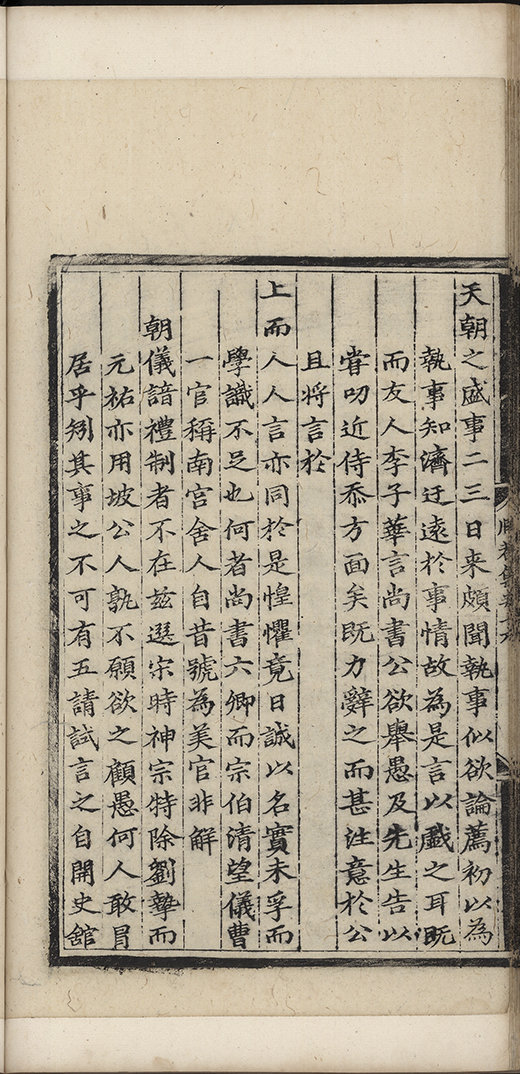 天朝之盛事二三日来頗聞執事似欲論薦初以為
執事知濟迂遠於事情故為是言以戱之耳旣
而友人李子華言尚書公欲舉愚及先生告以
甞叨近侍忝方面矣旣力辭之而甚注意於公
且将言於
上而人人言亦同於是惶懼竟日誠以名實未孚而
學識不足也何者尚書六卿而宗伯清望儀曹
一官稱南宫舍人自昔號為美官非解
朝儀諳禮制者不在兹選宗時神宗特除劉摯而
元祐亦用坡公人孰不願欲之顧愚何人敢冒
居乎矧其事之不可有五請試言之自開史舘